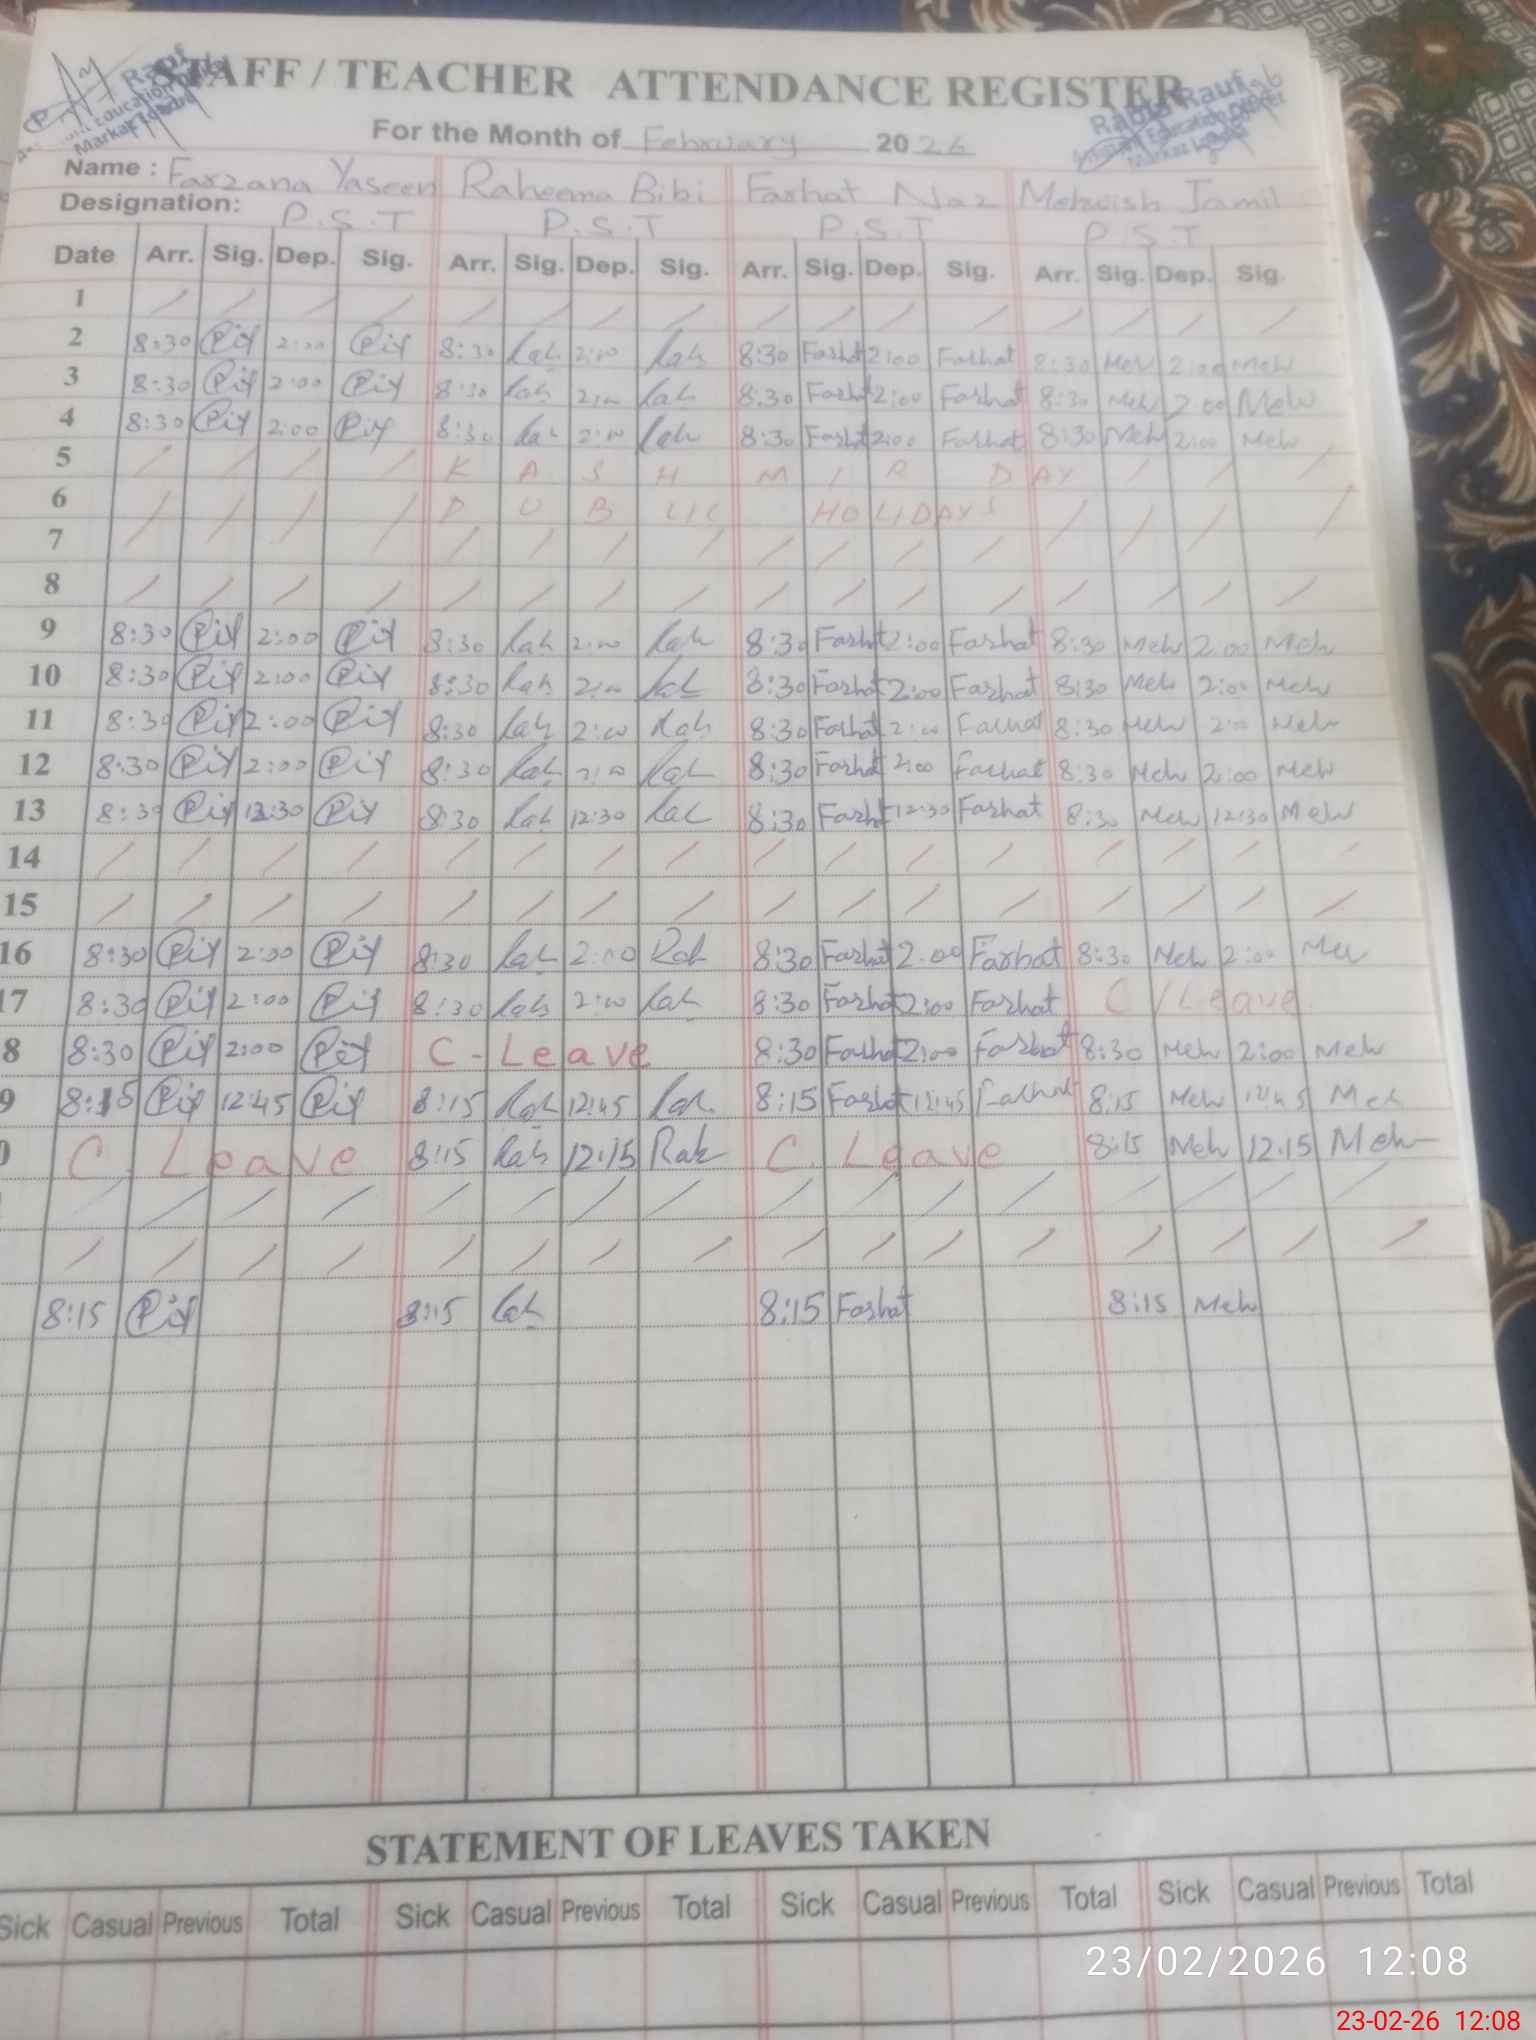 STAFF / TEACHER ATTENDANCE REGISTER
Rauf
Education
Markaz
Rabia Rauf
Education Officer
Markaz
For the Month of February 2026
Name : Farzana Yaseen Raheema Bibi Farhat Naz Mehwish Jamil
Designation: P.S.T P.S.T P.S.T P.S.T
Date Arr. Sig. Dep. Sig. Arr. Sig. Dep. Sig. Arr. Sig. Dep. Sig. Arr. Sig. Dep. Sig.
1
2 8:30 2:00 8:30 Rah 2:00 Rah 8:30 Farhat 2:00 Farhat 8:30 Meh 2:00 Meh
3 8:30 2:00 8:30 Rah 2:00 Rah 8:30 Farhat 2:00 Farhat 8:30 Meh 2:00 Meh
4 8:30 2:00 8:30 Rah 2:00 Rah 8:30 Farhat 2:00 Farhat 8:30 Meh 2:00 Meh
5 KASHMIR DAY
6 PUBLIC HOLIDAYS
7
8
9 8:30 2:00 8:30 Rah 2:00 Rah 8:30 Farhat 2:00 Farhat 8:30 Meh 2:00 Meh
10 8:30 2:00 8:30 Rah 2:00 Rah 8:30 Farhat 2:00 Farhat 8:30 Meh 2:00 Meh
11 8:30 2:00 8:30 Rah 2:00 Rah 8:30 Farhat 2:00 Farhat 8:30 Meh 2:00 Meh
12 8:30 2:00 8:30 Rah 2:00 Rah 8:30 Farhat 2:00 Farhat 8:30 Meh 2:00 Meh
13 8:30 12:30 8:30 Rah 12:30 Rah 8:30 Farhat 12:30 Farhat 8:30 Meh 12:30 Meh
14
15
16 8:30 2:00 8:30 Rah 2:00 Rah 8:30 Farhat 2:00 Farhat 8:30 Meh 2:00 Meh
17 8:30 2:00 8:30 Rah 2:00 Rah 8:30 Farhat 2:00 Farhat C/Leave
8 8:30 2:00 C-Leave 8:30 Farhat 2:00 Farhat 8:30 Meh 2:00 Meh
9 8:15 12:45 8:15 Rah 12:45 Rah 8:15 Farhat 12:45 Farhat 8:15 Meh 12:45 Meh
0 C. Leave 8:15 Rah 12:15 Rah C. Leave 8:15 Meh 12:15 Meh
8:15 8:15 Rah 8:15 Farhat 8:15 Meh
STATEMENT OF LEAVES TAKEN
Sick Casual Previous Total Sick Casual Previous Total Sick Casual Previous Total Sick Casual Previous Total
23/02/2026 12:08
23-02-26 12:08